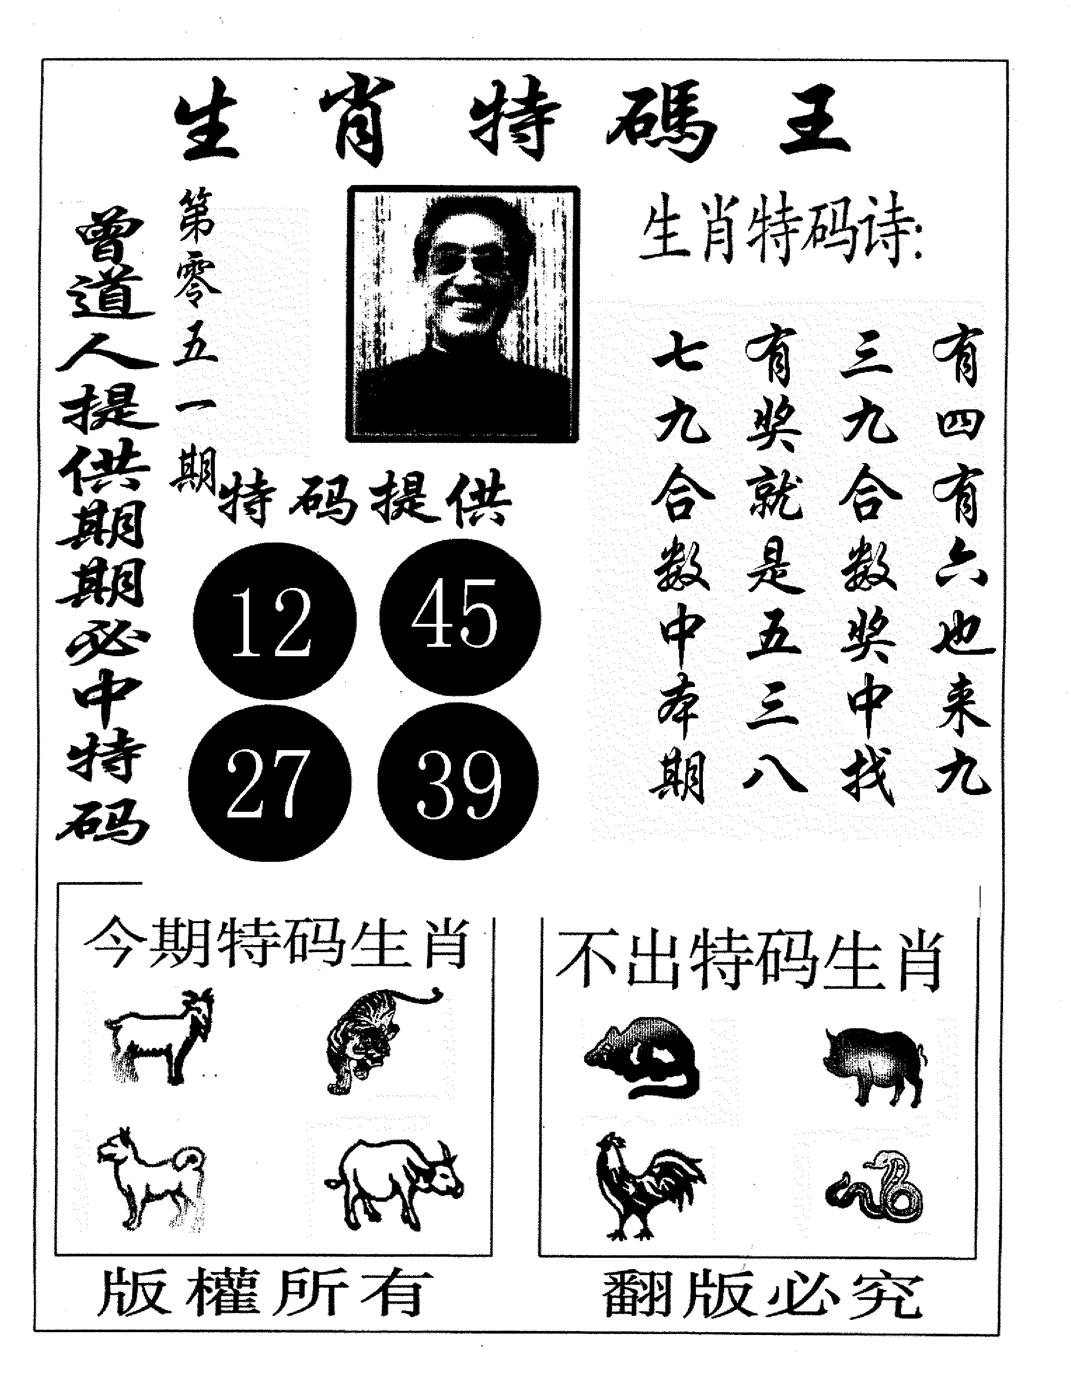 生肖特碼王
曾道人提供期期必中特码
第零五一期
特码提供
12 45
27 39
生肖特码诗:
有四有六也来九
三九合数奖中找
有奖就是五三八
七九合数中本期
今期特码生肖
不出特码生肖
版權所有
翻版必究